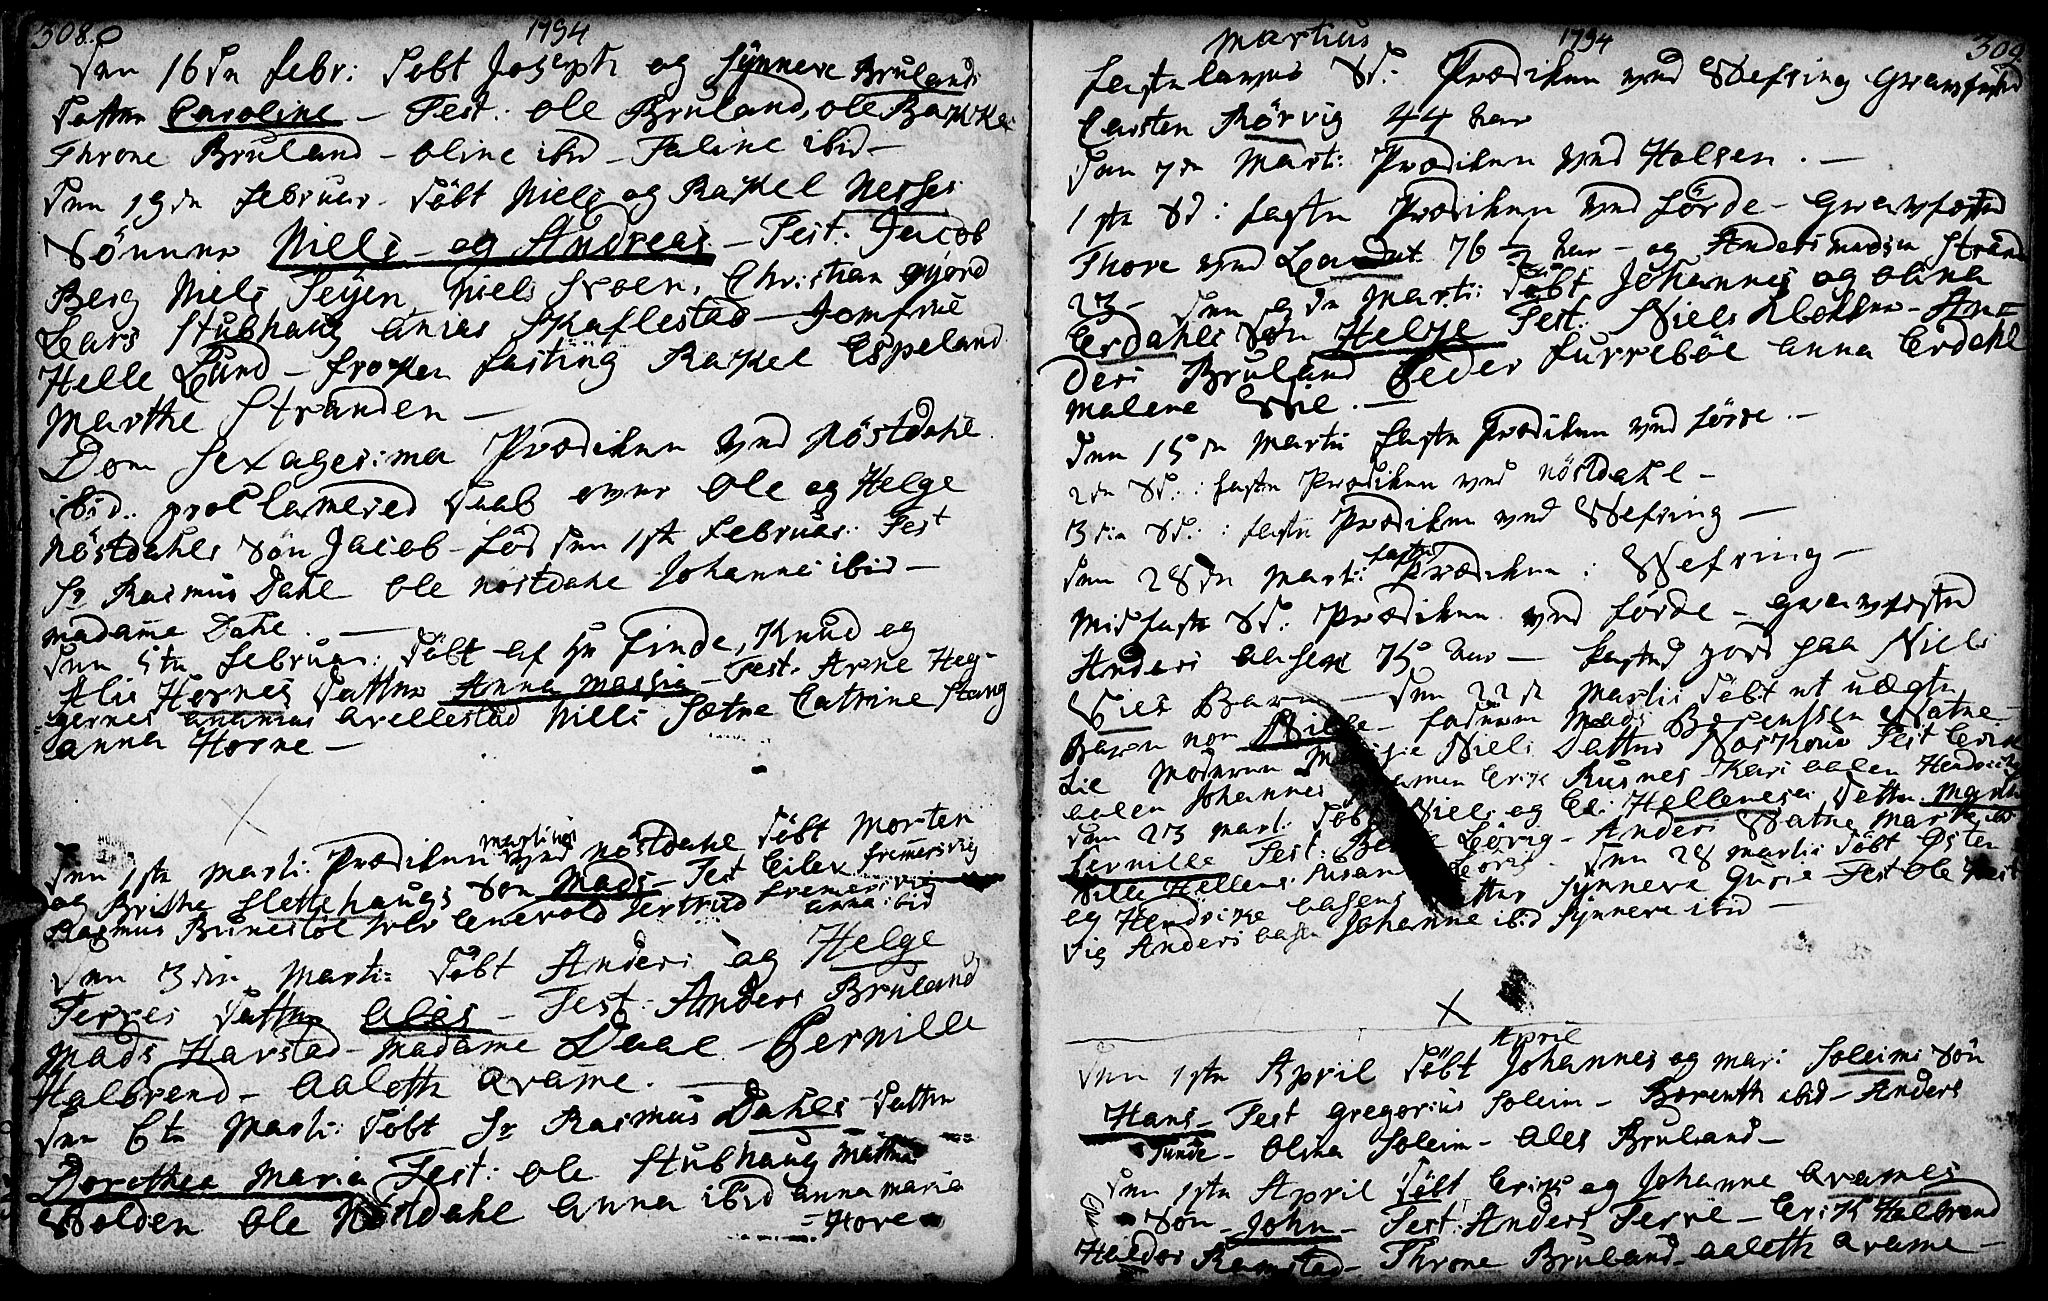 308.
1794
den 16de febr: døbt Joseph og Synneve Brulands
datter Caroline - Test: Ole Bruland, Ole Bakke
Throne Bruland - Oline ibid - Faline ibid -
den 19de februar. døbt Niels og Rakel Nesses
Sønner Nills - og Andreas - Test: Jacob
Berg Niels Teyen, Niels Svoen, Christian Gjord
Lars Stubhaug Anias Skaflestad - Jomfrue
Helle Lund - frøken fasting Rakel Espeland
Marthe Stranden -
Dom Sexagesima Prædiken ved Nøstdahl
ibid: proclamered daab over Ole og Helge
Nøstdahls Søn Jacob - fød den 1ste februar: Test
Sr Rasmus Dahl Ole Nøstdahl Johannes ibid -
madame Dahl. -
den 5te februar: døbt af Hr Finde, Knud og
Alis Hornes datter Anna Massia - Test: Arne Heg-
gernes Ananias Qvellestad Nills Sætre Catrine Stang
Anna Horne -
den 1ste marti: Prædiken ved Nøstdahl døbt Morten
martius
og Brithe Slettehaugs Søn Mads - Test Eilev fremersvig
Rasmus Brunestøl Enevold Gertrud fremersvig
anna ibid
den 3die Marti: døbt Anders og Helge
Ferres datter Ales - Test: Anders Bruland
Mads Harstad - Madame Daae - Pernille
Halbrend - Aaleth Qvame. -
den 6te Marti: døbt Sr Rasmus Dahls datter
Dorothea Maria Test: Ole Stubhaug Mattias
Holden Ole Nøstdahl Anna ibid anna maria
= Hove
martius
1794
309
fastelavns Sd: Prædiken ved Vefring Gravfæsted
Carsten Rørvig 44 aar
den 7de Mart: Prædiken ved Holsen. -
1ste Sd: faste Prædiken ved Førde - Gravfæsted
Thore ved Landet 76 1/2 aar - og Anders Madsen Strand
23 - den 9de Marti: døbt Johannes og Olina
Erdahls Søn Helge Test: Niels Klokker - An-
ders Bruland Peder Furrebøe Anna Erdahl
Malene Wie. -
den 15de Martii faste Prædiken ved Førde. -
2den Sd: faste Prædiken ved Nøstdahl -
3die Sd: faste Prædiken ved Vefring -
den 28de Marti: faste Prædiken: Vefring -
Midfaste Sd: Prædiken ved Førde - gravfæsted
Anders Aasen 75 aar - kasted jord paa Niels
Vies Barn - den 22de Martii døbt et uægte
Barn nom Nille - faderen Mads Berentsen Natne-
Lie Moderen Niels datter Test
Aalen Johannes Erik Rusnes - Kari Aalen
den 23 mart: døbt Niels og El: Hellenes datter
Pernille Test: Løvig - Anders Marthe ibid
Nille Hellens Susan den 28 martii døbt Østen
og Hendrikke Aasens datter Synneve Gurie - Test Ole
vig Anders Aasen Johanne ibid Synneve ibid -
April
den 1ste April døbt Johannes og mar: Soleims Søn
Hans - Test Gregorius Soleim - Berenth ibid - Anders
Tunde - Olina Soleim - Ales Bruland -
den 1ste April døbt Erik og Johanne Qvames
Søn - John - Test: Anders Ferre - Erik Halbrend
Haldor Ramstad - Throne Bruland - Aaleth Qvame -